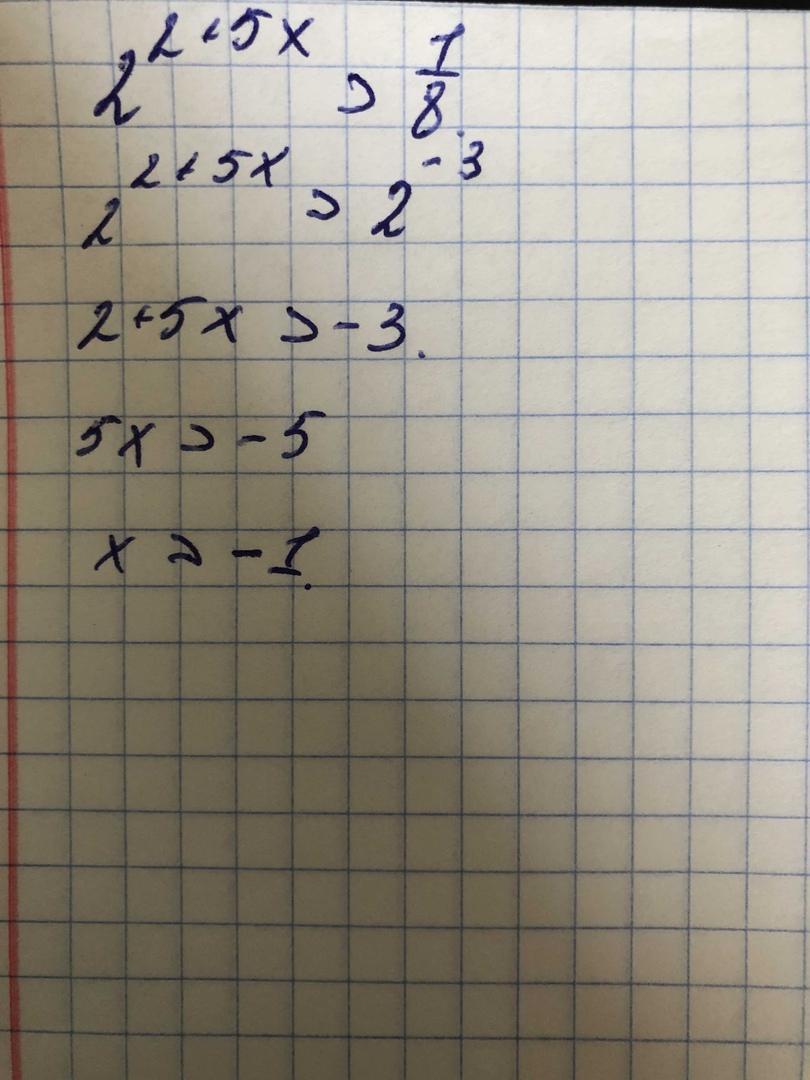 2^{2+5x} > \frac{1}{8}.
2^{2+5x} > 2^{-3}
2+5x > -3.
5x > -5
x > -1.